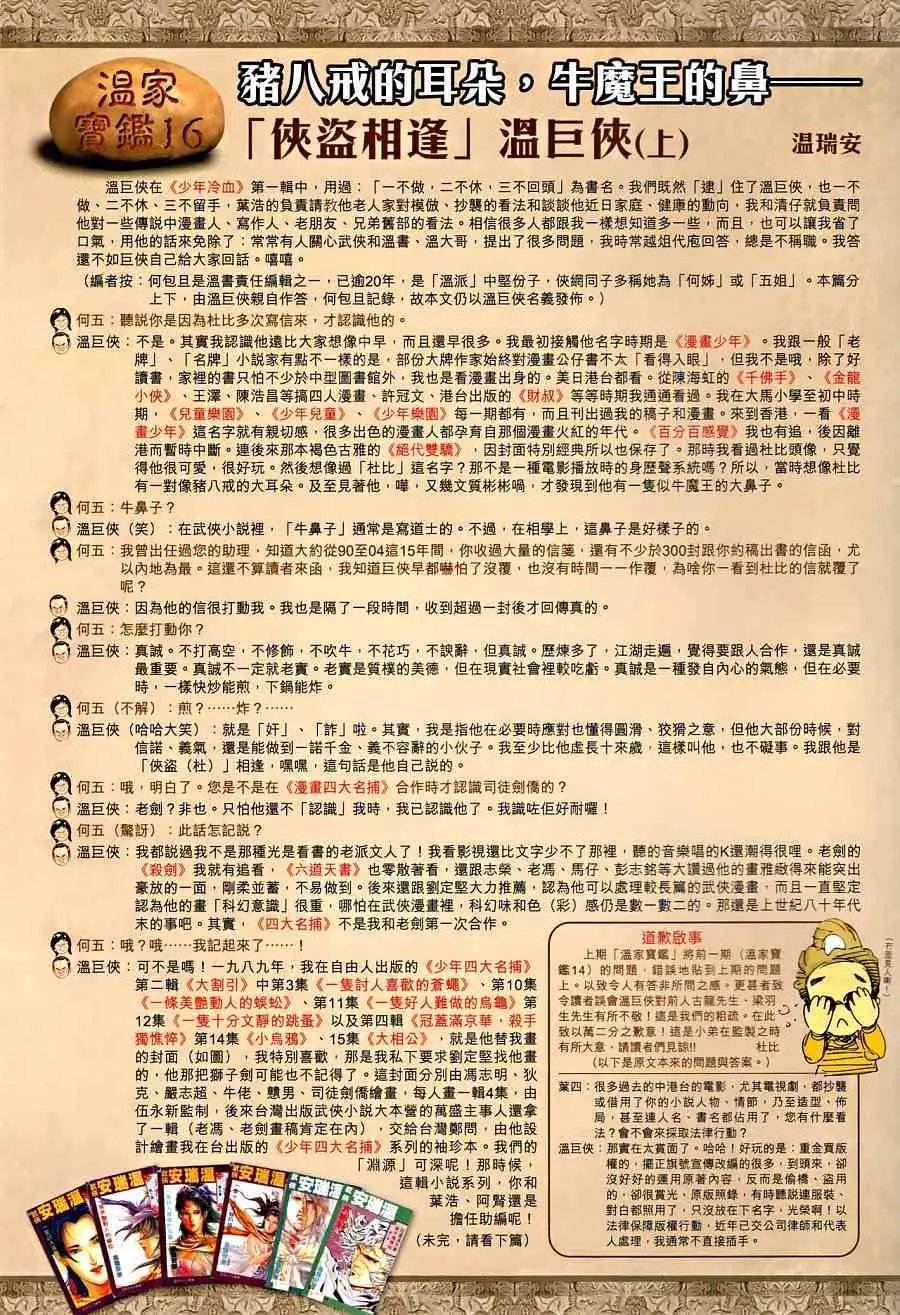 溫家
寶鑑16
豬八戒的耳朵，牛魔王的鼻——
「俠盜相逢」溫巨俠(上)
溫瑞安
溫巨俠在《少年冷血》第一輯中，用過：「一不做，二不休，三不回頭」為書名。我們既然「逮」住了溫巨俠，也一不
做、二不休、三不留手，葉浩的負責請教他老人家對模倣、抄襲的看法和談談他近日家庭、健康的動向，我和清仔就負責問
他對一些傳説中漫畫人、寫作人、老朋友、兄弟舊部的看法。相信很多人都跟我一樣想知道多一些，而且，也可以讓我省了
口氣，用他的話來免除了：常常有人關心武俠和溫書、溫大哥，提出了很多問題，我時常越俎代庖回答，總是不稱職。我答
還不如巨俠自己給大家回話。嘻嘻。
（編者按：何包旦是溫書責任編輯之一，已逾20年，是「溫派」中堅份子，俠網同子多稱她為「何姊」或「五姐」。本篇分
上下，由溫巨俠親自作答，何包旦記錄，故本文仍以溫巨俠名義發佈。）
何五：聽説你是因為杜比多次寫信來，才認識他的。
溫巨俠：不是。其實我認識他遠比大家想像中早，而且還早很多。我最初接觸他名字時期是《漫畫少年》。我跟一般「老
牌」、「名牌」小説家有點不一樣的是，部份大牌作家始終對漫畫公仔書不太「看得入眼」，但我不是哦，除了好
讀書，家裡的書只怕不少於中型圖書館外，我也是看漫畫出身的。美日港台都看。從陳海虹的《千佛手》、《金龍
小俠》、王澤、陳浩昌等搞四人漫畫、許冠文、港台出版的《財叔》等等時期我通通看過。我在大馬小學至初中時
期，《兒童樂園》、《少年兒童》、《少年樂園》每一期都有，而且刊出過我的稿子和漫畫。來到香港，一看《漫
畫少年》這名字就有親切感，很多出色的漫畫人都孕育自那個漫畫火紅的年代。《百分百感覺》我也有追，後因離
港而暫時中斷。連後來那本褐色古雅的《絕代雙驕》，因封面特別經典所以也保存了。那時我看過杜比頭像，只覺
得他很可愛，很好玩。然後想像過「杜比」這名字？那不是一種電影播放時的身歷聲系統嗎？所以，當時想像杜比
有一對像豬八戒的大耳朵。及至見著他，嘩，又幾文質彬彬喎，才發現到他有一隻似牛魔王的大鼻子。
何五：牛鼻子？
溫巨俠（笑）：在武俠小説裡，「牛鼻子」通常是寫道士的。不過，在相學上，這鼻子是好樣子的。
何五：我曾出任過您的助理，知道大約從90至04這15年間，你收過大量的信箋，還有不少於300封跟你約稿出書的信函，尤
以內地為最。這還不算讀者來函，我知道巨俠早都嚇怕了沒覆，也沒有時間一一作覆，為啥你一看到杜比的信就覆了
呢？
溫巨俠：因為他的信很打動我。我也是隔了一段時間，收到超過一封後才回傳真的。
何五：怎麼打動你？
溫巨俠：真誠。不打高空，不修飾，不吹牛，不花巧，不諛辭，但真誠。歷煉多了，江湖走遍，覺得要跟人合作，還是真誠
最重要。真誠不一定就老實。老實是質樸的美德，但在現實社會裡較吃虧。真誠是一種發自內心的氣態，但在必要
時，一樣快炒能煎，下鍋能炸。
何五（不解）：煎？……炸？……
溫巨俠（哈哈大笑）：就是「奸」、「詐」啦。其實，我是指他在必要時應對也懂得圓滑、狡猾之意，但他大部份時候，對
信諾、義氣，還是能做到一諾千金、義不容辭的小伙子。我至少比他虛長十來歲，這樣叫他，也不礙事。我跟他是
「俠盜（杜）」相逢，嘿嘿，這句話是他自己説的。
何五：哦，明白了。您是不是在《漫畫四大名捕》合作時才認識司徒劍僑的？
溫巨俠：老劍？非也。只怕他還不「認識」我時，我已認識他了。我識咗佢好耐囉！
何五（驚訝）：此話怎記説？
溫巨俠：我都説過我不是那種光是看書的老派文人了！我看影視還比文字少不了那裡，聽的音樂唱的K還潮得很哩。老劍的
《殺劍》我就有追看，《六道天書》也零散著看，還跟志榮、老馮、馬仔、彭志銘等大讚過他的畫雅緻得來能突出
豪放的一面，剛柔並蓄，不易做到。後來還跟劉定堅大力推薦，認為他可以處理較長篇的武俠漫畫，而且一直堅定
認為他的畫「科幻意識」很重，哪怕在武俠漫畫裡，科幻味和色（彩）感仍是數一數二的。那還是上世紀八十年代
末的事吧。其實，《四大名捕》不是我和老劍第一次合作。
何五：哦？哦……我記起來了……！
溫巨俠：可不是嗎！一九八九年，我在自由人出版的《少年四大名捕》
第二輯《大割引》中第3集《一隻討人喜歡的蒼蠅》、第10集
《一條美艷動人的蜈蚣》、第11集《一隻好人難做的烏龜》第
12集《一隻十分文靜的跳蚤》以及第四輯《冠蓋滿京華，殺手
獨憔悴》第14集《小烏鴉》、15集《大相公》，就是他替我畫
的封面（如圖），我特別喜歡，那是我私下要求劉定堅找他畫
的，他那把獅子劍可能也不記得了。這封面分別由馮志明、狄
克、嚴志超、牛佬、戇男、司徒劍僑繪畫，每人畫一輯4集，由
伍永新監制，後來台灣出版武俠小説大本營的萬盛主事人還拿
了一輯（老馮、老劍畫稿肯定在內），交給台灣鄭問，由他設
計繪畫我在台出版的《少年四大名捕》系列的袖珍本。我們的
「淵源」可深呢！那時候，
這輯小説系列，你和
葉浩、阿賢還是
擔任助編呢！
（未完，請看下篇）
道歉啟事
上期「溫家寶鑑」將前一期（溫家寶
鑑14）的問題，錯誤地貼到上期的問題
上。以致令人有答非所問之感。更甚者致
令讀者誤會溫巨俠對前人古龍先生、梁羽
生先生有所不敬！這是我們的粗疏。在此
致以萬二分之歉意！這是小弟在監製之時
有所大意，請讀者們見諒!!
杜比
（以下是原文本來的問題與答案。）
（冇面見人喇！）
葉四：很多過去的中港台的電影，尤其電視劇，都抄襲
或借用了你的小説人物、情節，乃至造型、佈
局，甚至連人名、書名都佔用了，您有什麼看
法？會不會來採取法律行動？
溫巨俠：那實在太賞面了。哈哈！好玩的是：重金買版
權的，擺正旗號宣傳改編的很多，到頭來，卻
沒好好的運用原著內容，反而是偷橋、盜用
的，卻很賞光、原版照錄，有時聽説連服裝、
對白都照用了，只沒放在下名字，光榮啊！以
法律保障版權行動，近年已交公司律師和代表
人處理，我通常不直接插手。
溫瑞安
溫瑞安
溫瑞安
溫瑞安
溫瑞安
溫瑞安